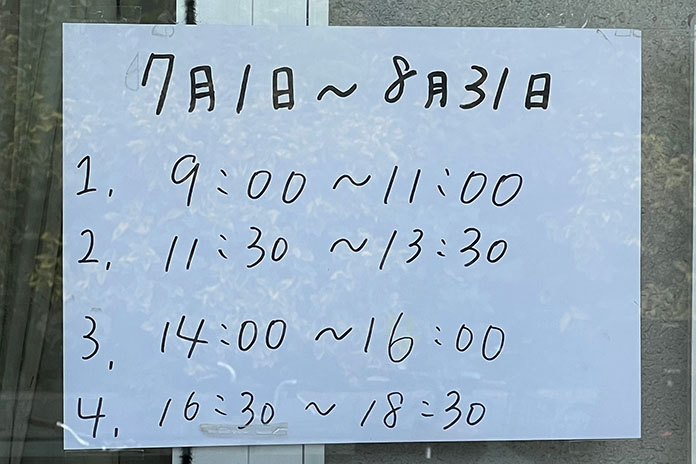 7月1日～8月31日
1. 9:00～11:00
2. 11:30～13:30
3. 14:00～16:00
4. 16:30～18:30